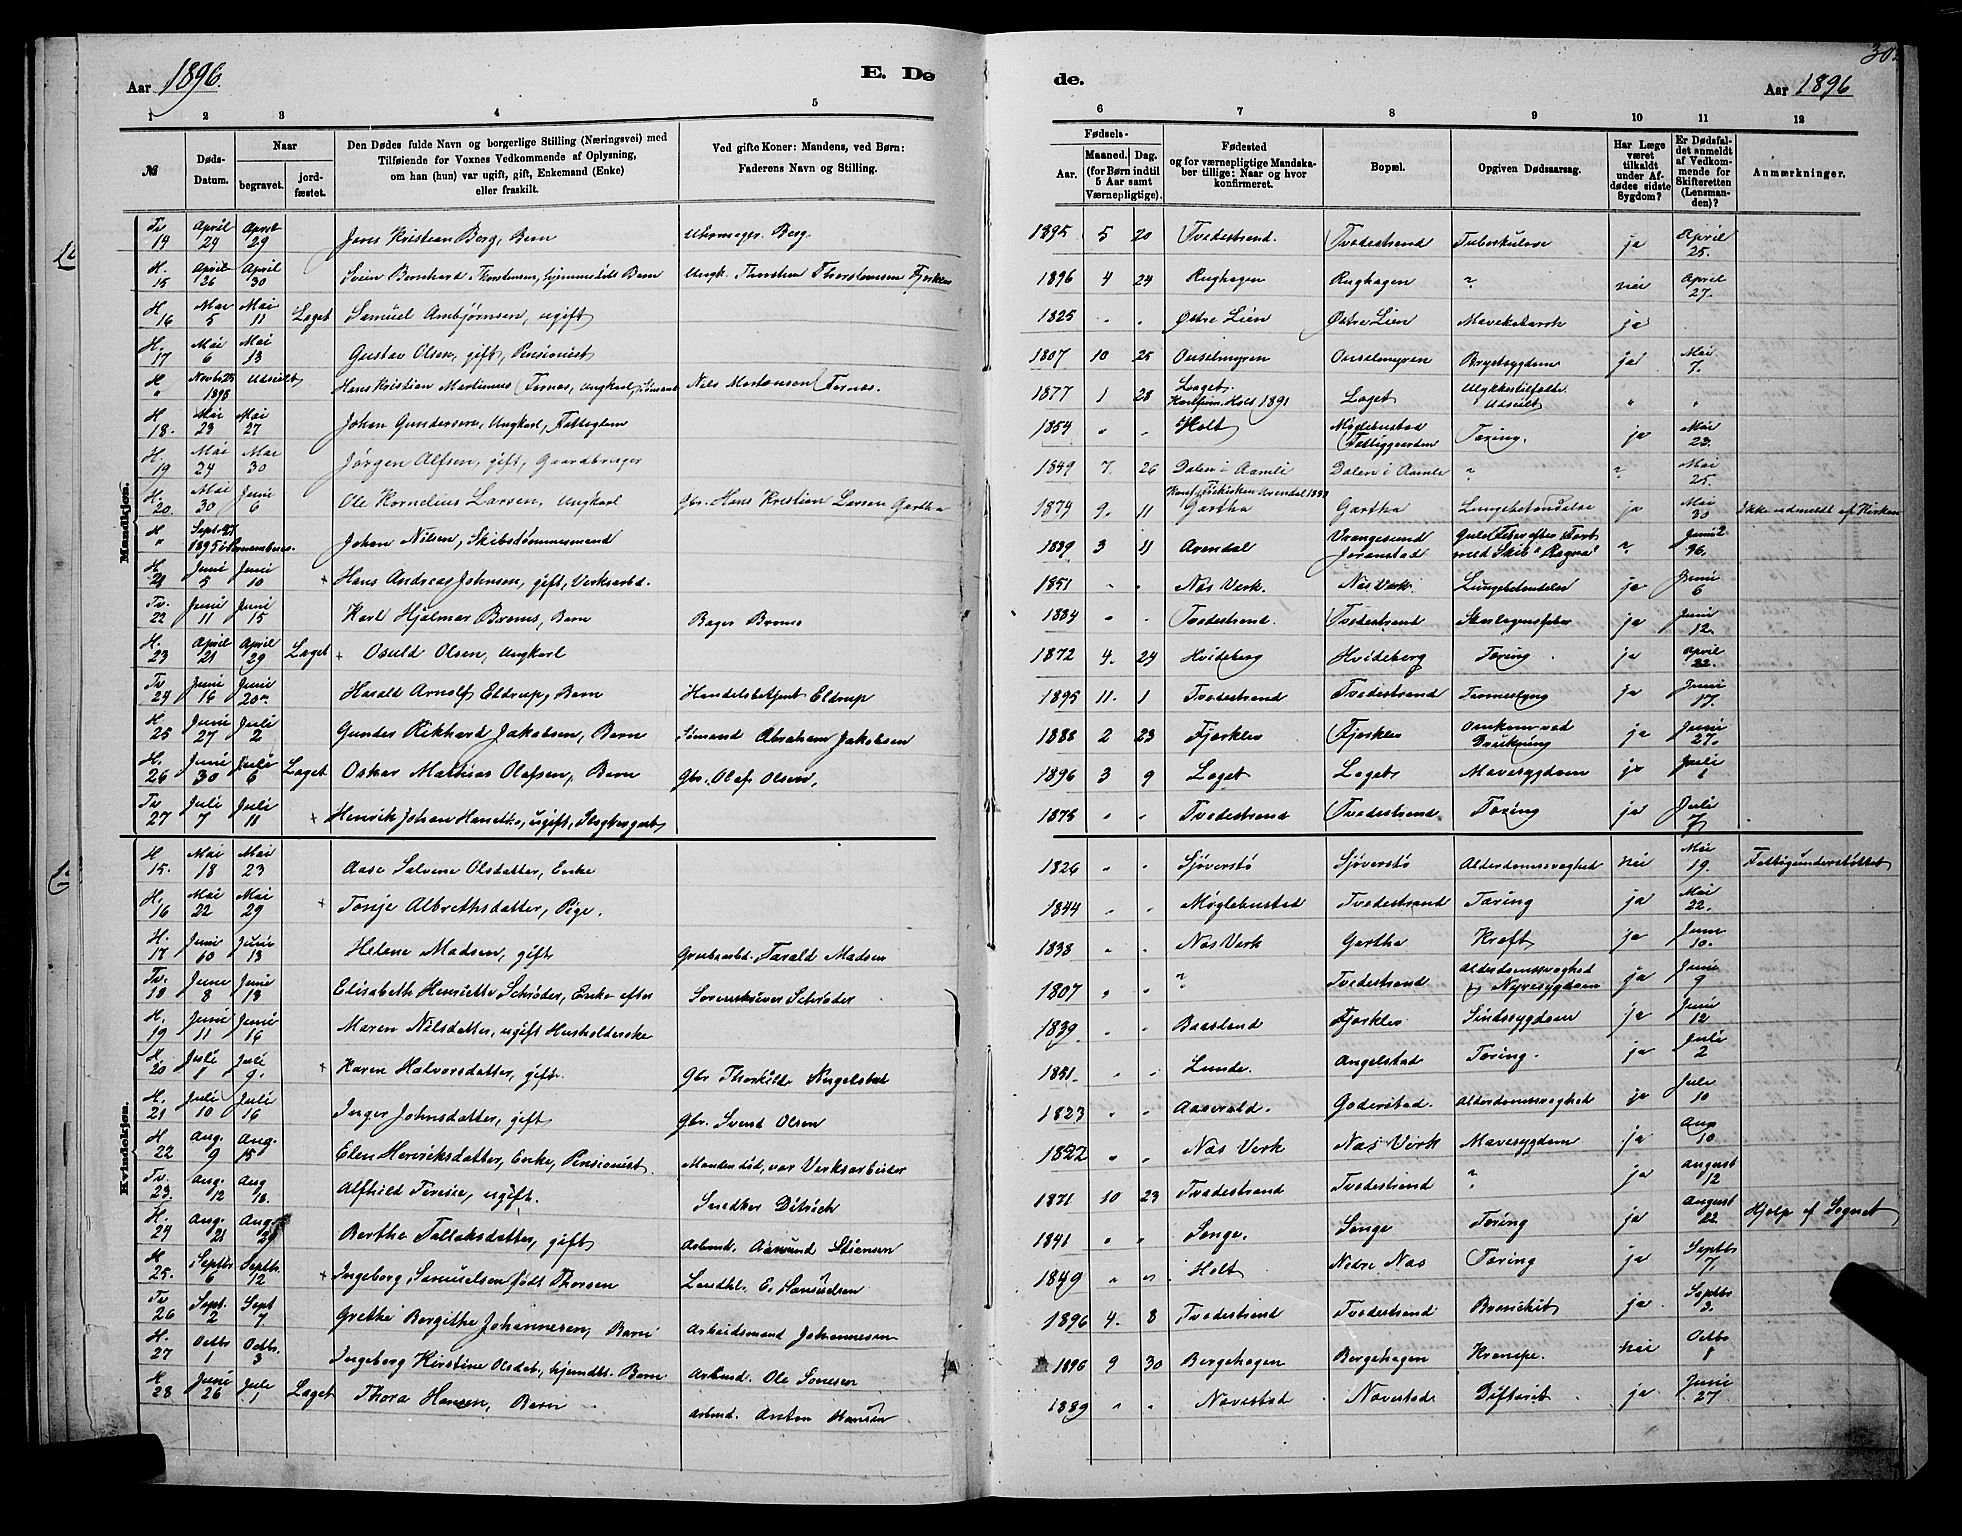 Aar 1896.
E. Dø
de.
Aar 1896
30
1 2 3 4 5 6 7 8 9 10 11 12
№
Døds-Datum.
Naar
begravet.
jord-fæstet.
Den Dødes fulde Navn og borgerlige Stilling (Næringsvei) med
Tilføiende for Voxnes Vedkommende af Oplysning,
om han (hun) var ugift, gift, Enkemand (Enke)
eller fraskilt.
Ved gifte Koner: Mandens, ved Børn:
Faderens Navn og Stilling.
Fødsels-
Aar.
Maaned. Dag.
(for Børn indtil
5 Aar samt
Værnepligtige).
Fødested
og for værnepligtige Mandska-
ber tillige: Naar og hvor
konfirmeret.
Bopæl.
Opgiven Dødsaarsag.
Har Læge
været
tilkaldt
under Af-
dødes sidste
Sygdom?
Er Dødsfal-
det anmeldt
af Vedkom-
mende for
Skifteretten
(Lensman-
den)?
Anmærkninger.
Mandkjøn.
Tv 14 April 24 April 29 Jens Kristian Berg, Barn Uhrmager Berg. 1895 5 20 Tvedestrand. Tvedestrand Tuberkulose ja April 25.
H. 15 April 26 April 30 Svein Bernhard Torstensen, hjemmedøbt Barn Ungk. Thorsten Thorstensen Fjerklev 1896 4 24 Rughagen Rughagen " nei April 27.
H. 16 Mai 5 Mai 11 Laget Samuel Ambjørnsen, ugift 1825 " " Østre Lien Østre Lien Mavekatarrh ja
H. 17 Mai 6 Mai 13 Gustav Olsen, gift, Pensionist 1807 10 25 Onselmyren Onselmyren Brystsygdom ja Mai 7.
H " Novbr 25 1895 Udseilt Hans Kristian Martinius Ternes, Ungkarl, Sømand Nils Mortensen Ternes. 1877 1 28 Laget. Konfirm. Holt 1891 Laget Ulykkestilfælde Udseilt " "
H 18. Mai 23 Mai 27 Johan Gundersen, Ungkarl, Fattiglem 1854 " " Holt Møglebustad Fattiggaarden Tæring. ja Mai 23.
H. 19 Mai 24 Mai 30 Jørgen Alfsen, gift, Gaardbruger 1849 7. 26 Dalen i Aamli Dalen i Aamli " " Mai 25.
H. 20. Mai 30 Juni 6 Ole Kornelius Larsen, Ungkarl Gbr. Hans Kristian Larsen Gjertha 1874 9. 11 Gjertha Gjertha Lungebetændelse ja Mai 30 Ikke udmeldt af Kirken
H " Septbr 27 1895 Johan Nilsen, Skibstømmermand 1839 3 11 Arendal Vrangesund Joranstad Gule Feber efter Fart med Skib "Ragna" " Juni 2 96.
H 21 Juni 5 Juni 10 + Hans Andreas Johnsen, gift, Verksarbd. 1851 " " Nes Verk. Nes Verk. Lungebetændelse ja Juni 6
Tv. 22 Juni 11 Juni 15 Karl Hjalmar Broms, Barn Bager Broms 1884 " " Tvedestrand. Tvedestrand Skarlagensfeber ja Juni 12.
H. 23 April 21 April 29 Laget + Osuld Olsen, Ungkarl 1872 4. 24 Hvideberg Hvideberg Tæring ja April 22.
Tv 24 Juni 16 Juni 20 Harald Arnolf Eldrup, Barn Handelsbetjent Eldrup 1895 11. 1 Tvedestrand Tvedestrand Tarmeslyng ja Juni 17.
H. 25 Juni 27 Juli 2 Gunder Rikhard Jakobsen, Barn Sømand Abraham Jakobsen 1888 2 23 Fjerklev Fjerklev Omkom ved Drukning ja Juni 27.
H. 26 Juni 30 Juli 6 Laget Oskar Mathias Olafsen, Barn Gbr. Olaf Olsen, 1896 3 9 Laget Laget Mavesygdom ja Juli 1
Tv 27 Juli 7 Juli 11 + Henrik Johan Hanetho, ugift, 1875 " " Tvedestrand Tvedestrand Tæring ja Juli 7
Kvindekjøn.
H 15. Mai 18 Mai 23 Aase Salvine Olsdatter, Enke 1826 " " Sjøverstø Sjøverstø Alderdomssvaghed nei Mai 19. Fattigunderstøttet
H. 16 Mai 22 Mai 29 + Tonje Albrethsdatter, Pige. 1844 " " Møglebustad Tvedestrand Tæring ja Mai 22.
H. 17 Juni 10 Juni 13 Helene Madsen, gift Grubearbd. Tarald Madsen 1838 " " Nes Verk Gjertha Kræft ja Juni 10.
Tv. 18 Juni 8 Juni 13 Elisabeth Henriette Schrøder, Enke efter Sorenskriver Schrøder 1807 " " " Tvedestrand Alderdomssvaghed og Nyresygdom ja Juni 9
H. 19 Juni 11 Juni 16 Maren Nilsdatter, ugift Husholderske 1839 " " Baasland Fjerklev Sindssygdom ja Juni 12
H. 20 Juli 1 Juli 9. + Karen Halvorsdatter, gift. Gbr Thorkild Angelstad 1851. " " Lunde. Angelstad Tæring. ja Juli 2
H. 21 Juli 10 Juli 16 Inger Johnsdatter, gift Gbr. Svend Olsen 1823 " " Aasvald. Goderstad. Alderdomssvaghed ja Juli 10
H 22 Aug. 9 Aug. 15 Elen Henriksdatter, Enke, Pensionist Manden død, var Verksarbeider 1822 " " Nes Verk Nes Verk Mavesygdom ja Aug 10
Tv. 23. Aug. 12 Aug 18. Alfhild Terese, ugift. Snedker Ditrich 1871 10 23 Tvedestrand Tvedestrand " ja August 12
H. 24 Aug. 21 Aug. Berthe Tellaksdatter, gift Arbmd. Aasmund Stiansen 1841 " " Songe. Songe Tæring ja August 22 Hjelp af Sognet
H 25. Septbr 6 Septbr. 12 + Ingeborg Samuelsen født Thorsen Landhl. E. Samuelsen 1849 " " Holt Nedre Nes Tæring ja Septbr 7.
Tv 26 Sept. 2 Sept 7 Grethe Bergithe Johannesen, Barn Arbeidsmand Johannesen 1896 4. 8 Tvedestrand Tvedestrand Bronkit ja. Septbr 3.
H. 27 Octbr 1 Octbr. 3 Ingeborg Kirstine Olsdat., hjemdbt. Barn Arbmd. Ole Sørensen 1896 9 30 Bergehagen Bergehagen Krampe. nei Octbr 8
H 28. Juni 26 Juli 1 Laget Thora Hansen, Barn Arbmd. Anton Hansen 1889 " " Navestad Navestad Difterit ja Juni 27